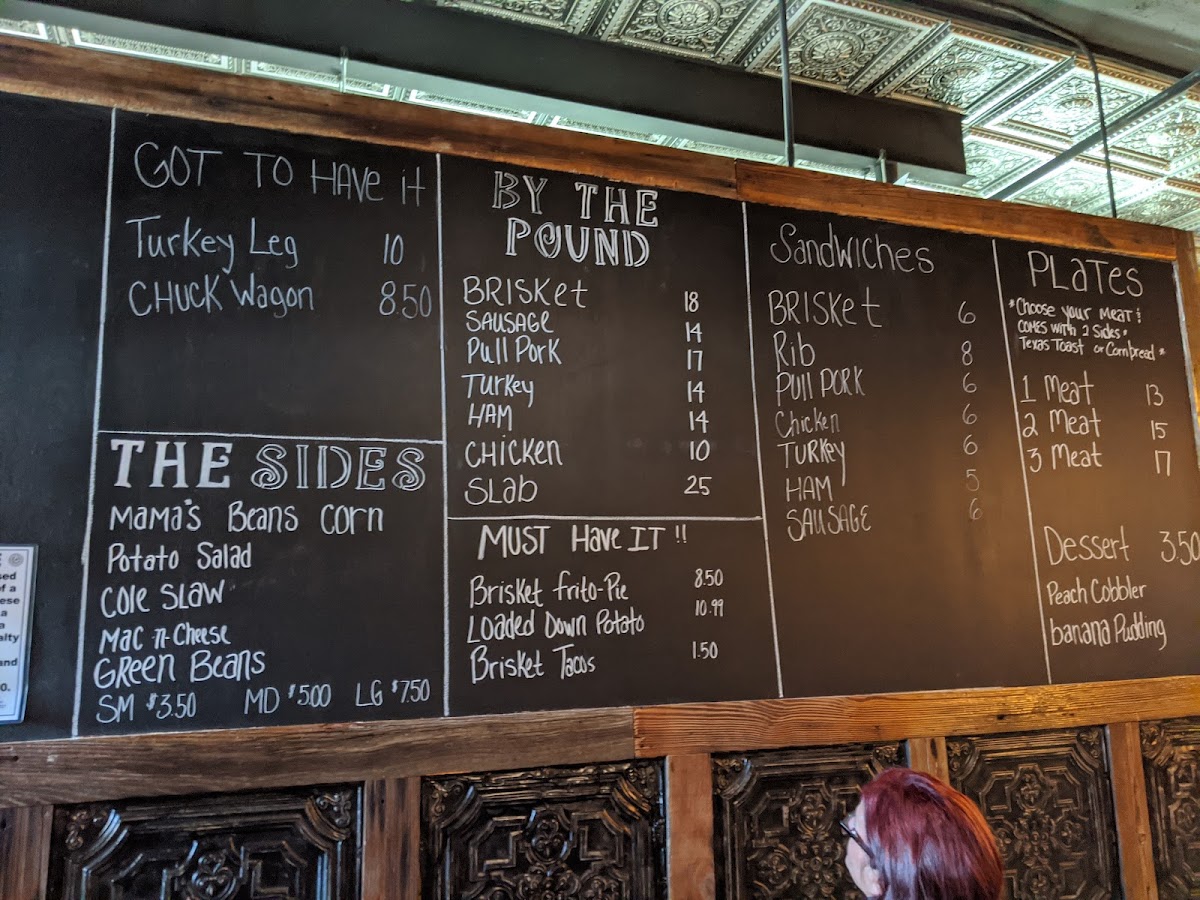 GOT TO HAVE it
Turkey Leg 10
CHUCK Wagon 8.50
THE SIDES
MAMA'S Beans CORN
Potato Salad
Cole SLAW
Mac n-Cheese
GReen Beans
SM $3.50 MD $5.00 LG $7.50
BY THE
POUND
BRISKet 18
SAUSAGE 14
Pull Pork 17
Turkey 14
HAM 14
CHicken 10
SLAb 25
MUST Have IT !!
Brisket frito-Pie 8.50
Loaded Down Potato 10.99
Brisket Tacos 1.50
Sandwiches
BRISKet 6
Rib 8
Pull PORK 6
Chicken 6
TURKEY 6
HAM 5
SAUSAGE 6
PLATES
*Choose your meat &
COMES with 2 Sides*
Texas Toast or Cornbread *
1 Meat 13
2 Meat 15
3 Meat 17
Dessert 3.50
Peach Cobbler
banana Pudding